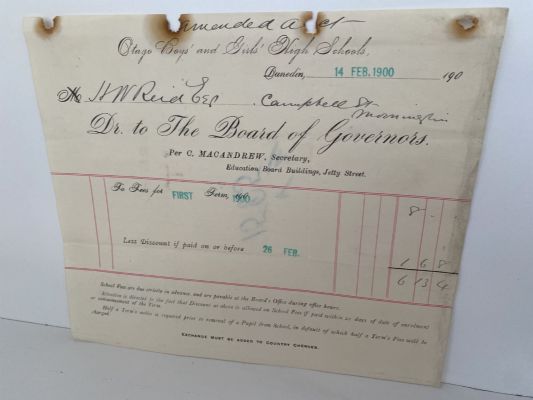 amended acct
Otago Boys' and Girls' High Schools,
Dunedin, 14 FEB. 1900 190
Mr H W Reid Esq Campbell St
Mornington
Dr. to The Board of Governors.
Per C. MACANDREW, Secretary,
Education Board Buildings, Jetty Street.
To Fees for FIRST Term, 1900 8 - -
Less Discount if paid on or before 26 FEB. 1 6 8
6 13 4
School Fees are due strictly in advance, and are payable at the Board's Office during office hours.
Attention is directed to the fact that Discount as above is allowed on School Fees if paid within 21 days of date of enrolment
or commencement of the Term.
Half a Term's notice is required prior to removal of a Pupil from School, in default of which half a Term's Fees will be
charged.
EXCHANGE MUST BE ADDED TO COUNTRY CHEQUES.